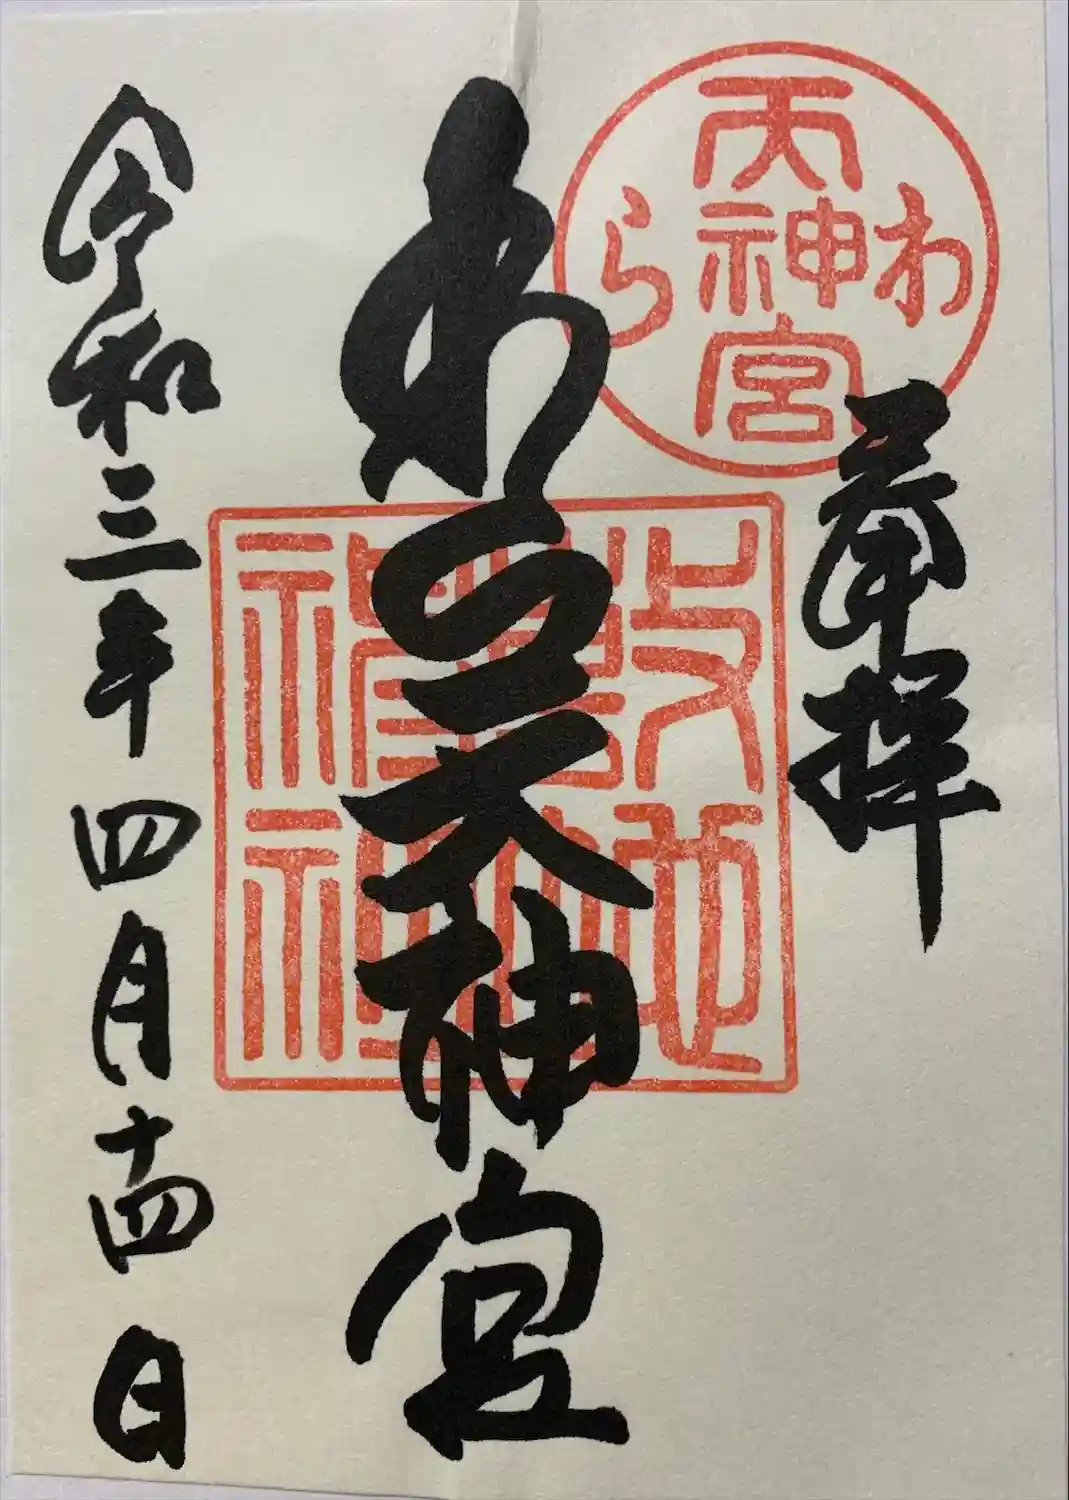 奉拝
わら天神宮
令和三年四月十四日
わら
天神宮
敷地
神